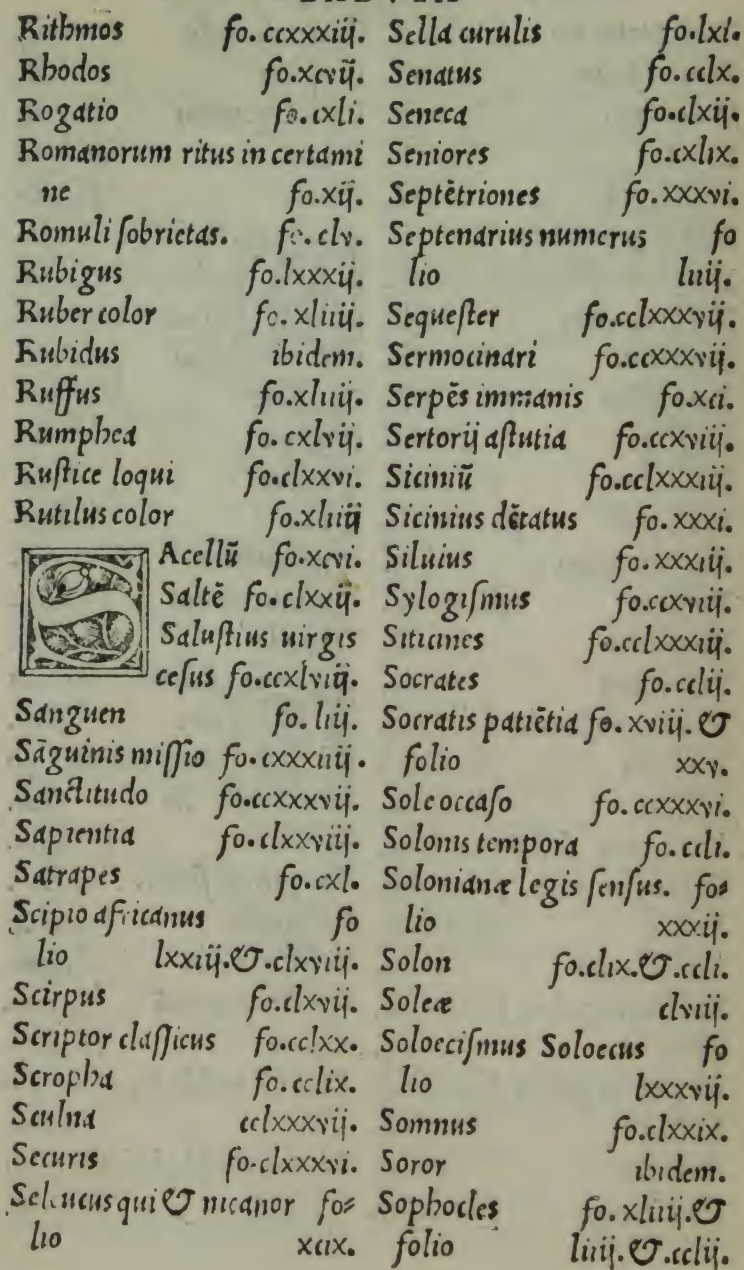 Rithmos fo. ccxxxiij.
Rhodos fo.xcvij.
Rogatio fo.cxli.
Romanorum ritus in certami
ne fo.xij.
Romuli ſobrietas. fo. clv.
Rubigus fo.lxxxij.
Ruber color fo. xliiij.
Rubidus ibidem.
Ruffus fo.xliiij.
Rumphea fo. cxlvij.
Ruſtice loqui fo.clxxvi.
Rutilus color fo.xliiij
SAcellū fo.xcvi.
Saltē fo. clxxij.
Saluſtius uirgis
ceſus fo.ccxlviij.
Sanguen fo. liij.
Sāguinis miſſio fo.cxxxiiij.
Sanctitudo fo.ccxxxvij.
Sapientia fo.clxxviij.
Satrapes fo.cxl.
Scipio africanus fo
lio lxxiij.&.clxviij.
Scirpus fo.clxvij.
Scriptor claſſicus fo.cclxx.
Scropha fo.cclix.
Sculna cclxxxvij.
Securis fo.clxxxvi.
Seleucus qui & nicanor fo⸗
lio xcix.
Sella curulis fo.lxi.
Senatus fo.cclx.
Seneca fo.clxij.
Seniores fo.cxlix.
Septētriones fo.xxxvi.
Septenarius numerus fo
lio liiij.
Sequeſter fo.cclxxxvij.
Sermocinari fo.ccxxxvij.
Serpēs immanis fo.xci.
Sertorij aſtutia fo.ccxviij.
Siciniū fo.cclxxxiij.
Sicinius dētatus fo.xxxi.
Siluius fo.xxxiij.
Sylogiſmus fo.ccxviij.
Siticines fo.cclxxxiij.
Socrates fo.cclij.
Socratis patiētia fo. xviij. &
folio xxv.
Sole occaſo fo.ccxxxvi.
Solonis tempora fo.ccli.
Solonianæ legis ſenſus. fo⸗
lio xxxij.
Solon fo.clix.&.ccli.
Soleæ clviij.
Soloeciſmus Soloecus fo
lio lxxxvij.
Somnus fo.clxxix.
Soror ibidem.
Sophocles fo. xliiij.&
folio liiij.&.cclij.